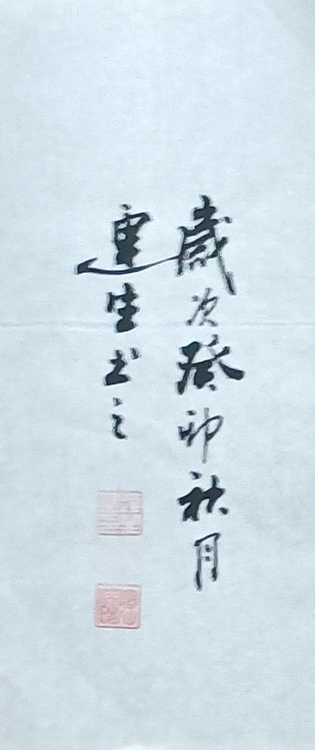 歲次癸卯秋月
運生书之